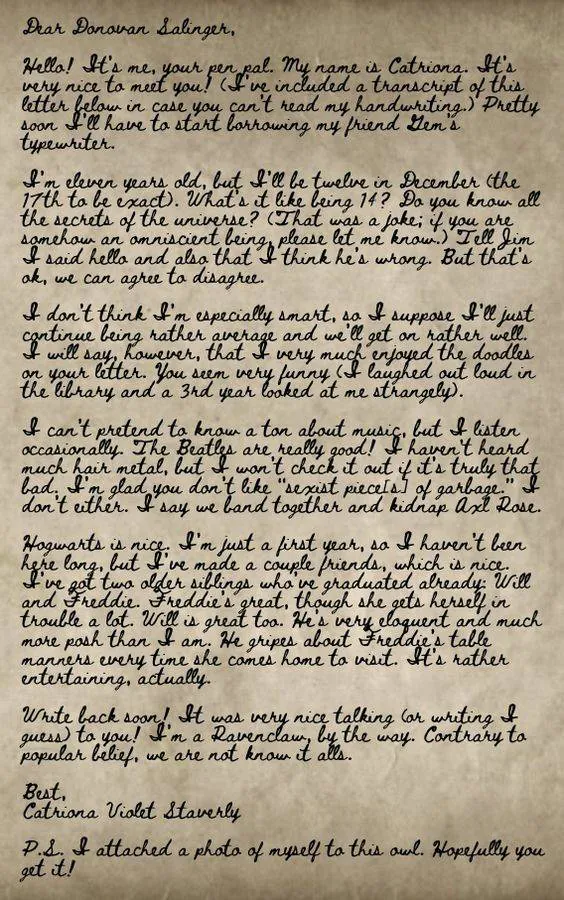 Dear Donovan Salinger,
Hello! It's me, your pen pal. My name is Catriona. It's
very nice to meet you! (I've included a transcript of this
letter below in case you can't read my handwriting.) Pretty
soon I'll have to start borrowing my friend Gem's
typewriter.
I'm eleven years old, but I'll be twelve in December (the
17th to be exact). What's it like being 14? Do you know all
the secrets of the universe? (That was a joke; if you are
somehow an omniscient being, please let me know.) Tell Jim
I said hello and also that I think he's wrong. But that's
ok, we can agree to disagree.
I don't think I'm especially smart, so I suppose I'll just
continue being rather average and we'll get on rather well.
I will say, however, that I very much enjoyed the doodles
on your letter. You seem very funny (I laughed out loud in
the library and a 3rd year looked at me strangely).
I can't pretend to know a ton about music, but I listen
occasionally. The Beatles are really good! I haven't heard
much hair metal, but I won't check it out if it's truly that
bad. I'm glad you don't like "sexist piece[s] of garbage." I
don't either. I say we band together and kidnap Axl Rose.
Hogwarts is nice. I'm just a first year, so I haven't been
here long, but I've made a couple friends, which is nice.
I've got two older siblings who've graduated already: Will
and Freddie. Freddie's great, though she gets herself in
trouble a lot. Will is great too. He's very eloquent and much
more posh than I am. He gripes about Freddie's table
manners every time she comes home to visit. It's rather
entertaining, actually.
Write back soon! It was very nice talking (or writing I
guess) to you! I'm a Ravenclaw, by the way. Contrary to
popular belief, we are not know it alls.
Best,
Catriona Violet Staverly
P.S. I attached a photo of myself to this owl. Hopefully you
get it!